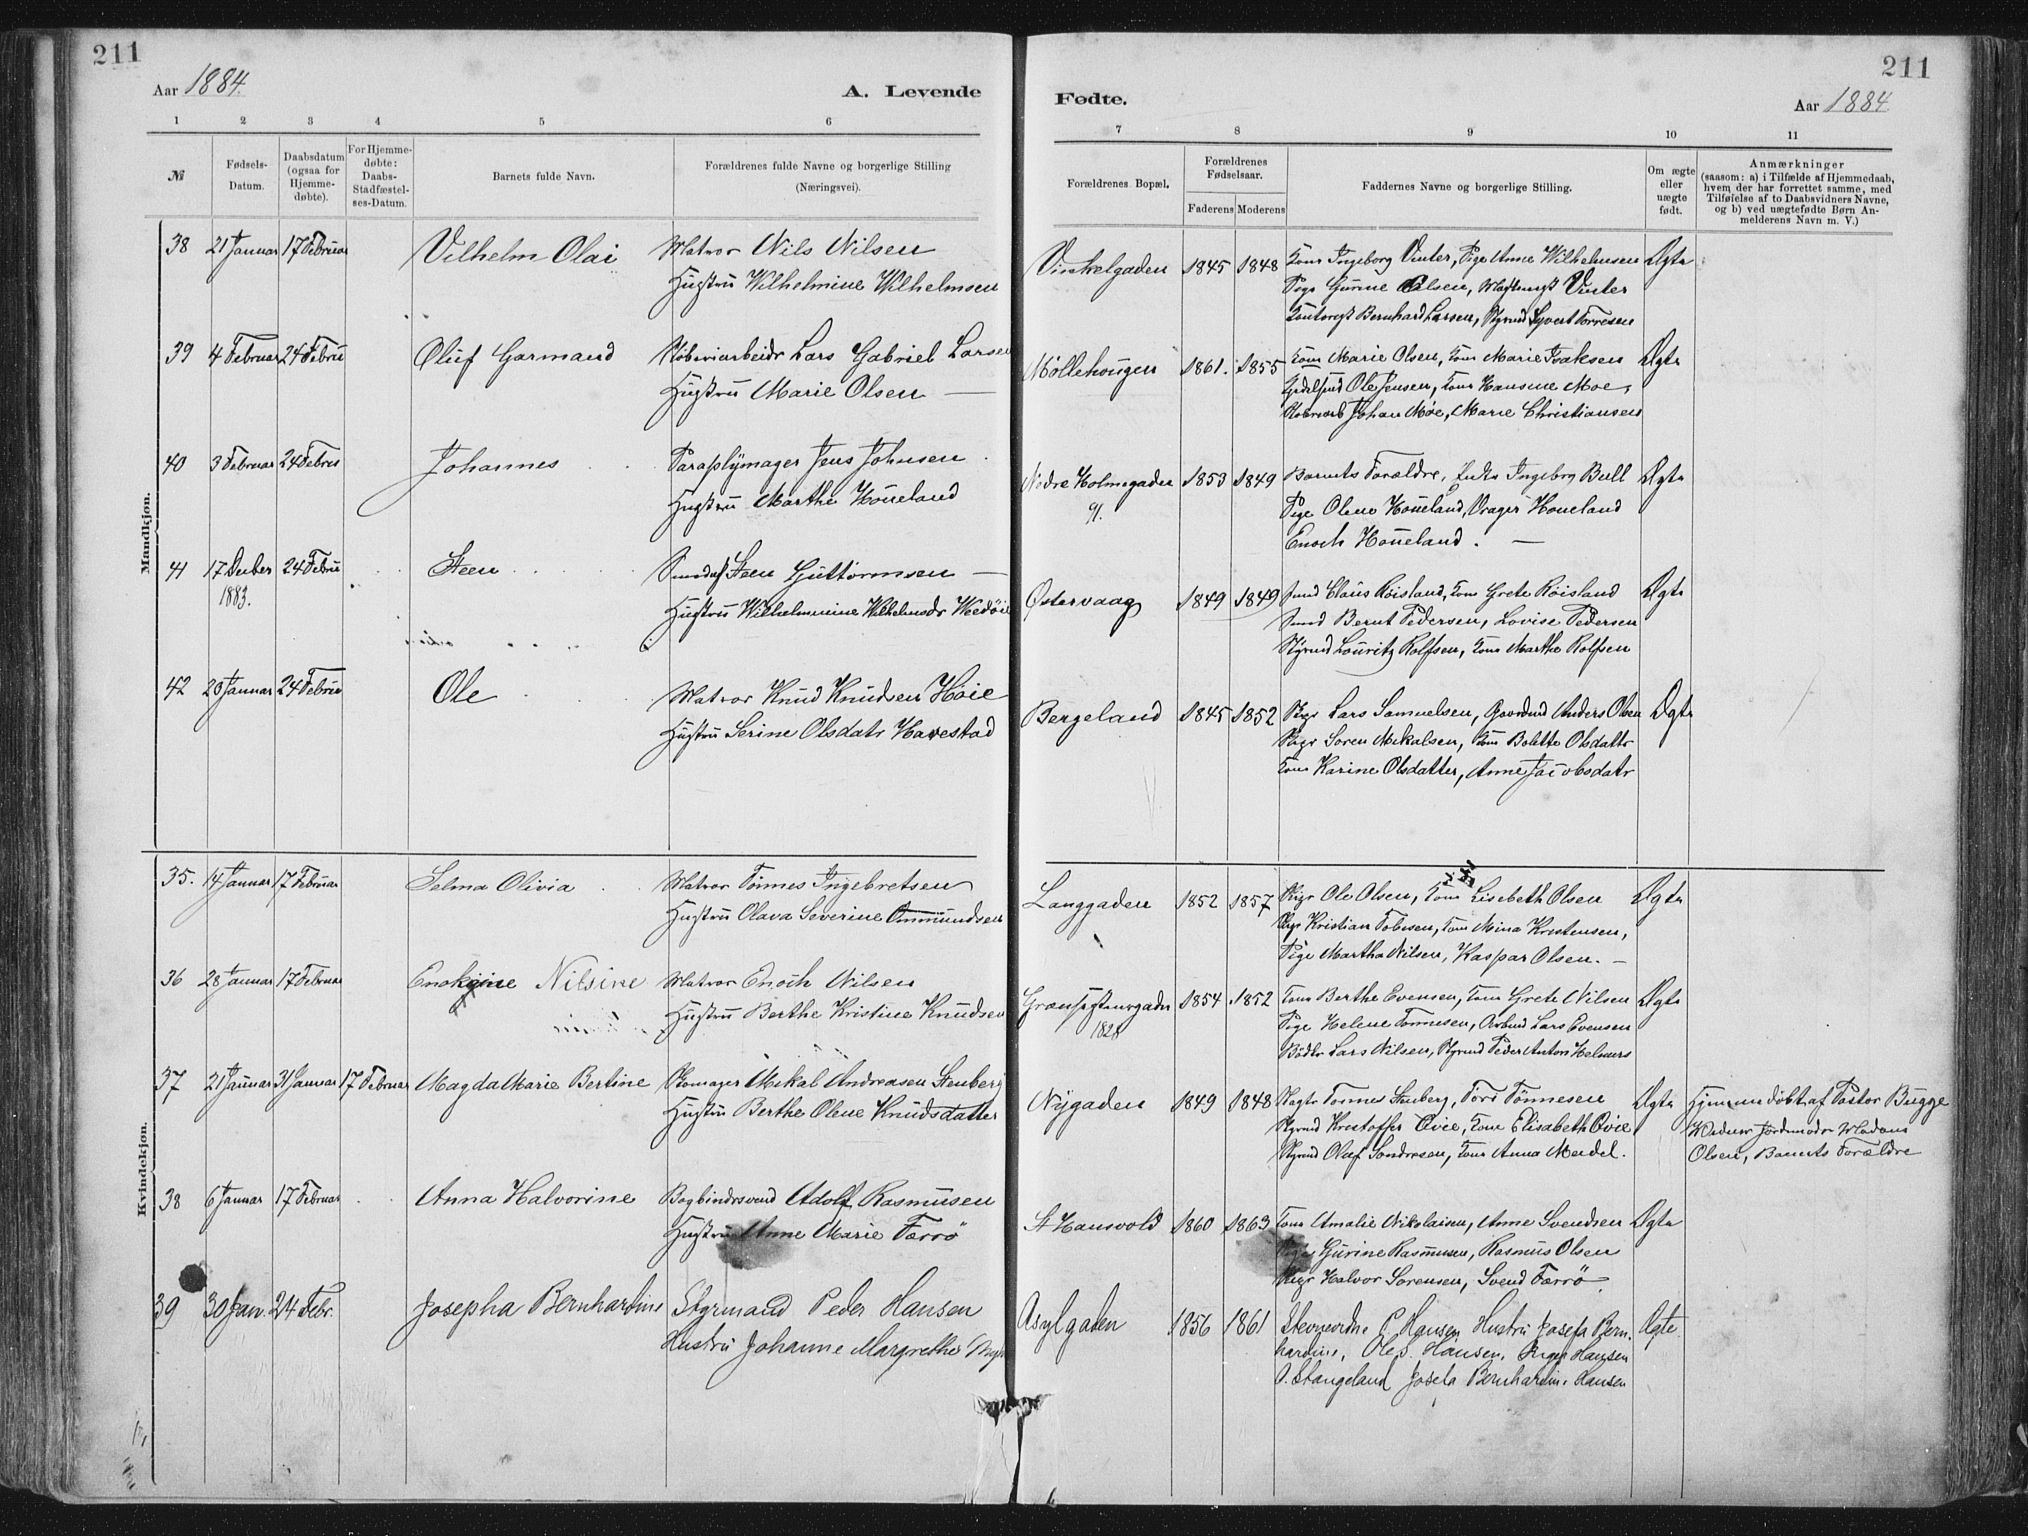 211
211
Aar 1884.
A. Levende
Fødte.
Aar 1884
1 2 3 4 5 6
7 8 9 10 11
№
Fødsels-
Datum.
Daabsdatum
(ogsaa for
Hjemme-
døbte).
For Hjemme-
døbte:
Daabs-
Stadfæstel-
ses-Datum.
Barnets fulde Navn.
Forældrenes fulde Navne og borgerlige Stilling
(Næringsvei).
Forældrenes Bopæl.
Forældrenes
Fødselsaar.
Faderens Moderens
Faddernes Navne og borgerlige Stilling.
Om ægte
eller
uægte
født.
Anmærkninger
(saasom: a) i Tilfælde af Hjemmedaab,
hvem der har forrettet samme, med
Tilføielse af to Daabsvidners Navne,
og b) ved uægtefødte Børn An-
melderens Navn m. V.)
Mandkjøn.
38 21 Januar 17 Februar Vilhelm Olai Matros Nils Nilsen
Hustru Wilhelmine Wilhelmsen
Vinkelgaden 1845 1848 Kone Ingeborg Vinter, Pige Anne Wilhelmsen Ægte
Pige Gurine Olsen, Vinter
Bernhard Larsen, Styrmd Syvert Torresen
39 4 Februar 24 Febru Oluf Garmand Lars Gabriel Larsen
Hustru Marie Olsen —
Møllehougen 1861. 1855 Kone Marie Olsen, Kone Marie Isaksen Ægte
Ole Jensen, Kone Hansine Moe,
Johan Moe, Marie Christiansen
40 3 Februar 24 Febru Johannes Paraplymager Jens Johnsen
Hustru Marthe Houeland
Nedre Holmegaden 1853 1849 Barnets Forældre, Enke Ingeborg Bull Ægte
91.
Pige Olene Houeland, Vrager Houeland
Enoch Houeland. —
41 17 Decber 24 Febru Steen Steen Guttormsen —
1883.
Hustru Wilhelmine Wilhelmsdr
Østervaag 1849 1849 Smed Claus Røisland, Kone Grete Røisland Ægte
Smed Bernt Pedersen, Lovise Pedersen
Styrmd Louritz Rolfsen, Kone Marthe Rolfsen
42 23 Januar 24 Febru Ole Matros Knud Knudsen Høie
Hustru Serine Olsdatr Havestad
Bergeland 1845 1852 Lars Samuelsen, Gaardmd Anders Olsen Ægte
Soren Mikalsen, Kone Bolette Olsdattr
Kone Karine Olsdatter, Anne Jacobsdatr
Kvindekjøn.
35. 14 Januar 17 Februar Selma Olivia Matros Tønnes Ingebretsen
Hustru Olava Severine Ommundsen
Langgaden 1852 1857 Ole Olsen, Kone Lisebeth Olsen Ægte
Kristian Tobiesen, Kone Mina Kristensen,
Pige Martha Nilsen, Kaspar Olsen. —
36 28 Januar 17 Februar Enokine Nilsine Matros Enoch Nilsen
Hustru Berthe Kristine Knudsen
1854 1852 Kone Berthe Evensen, Kone Grete Nilsen Ægte
Pige Helene Tonnesen, Lars Evensen
Bødkr Lars Nilsen, Styrmd Peder Anton Helmers
37 21 Januar 31 Januar 17 Februar Magda Marie Bertine Skomager Mikal Andreasen Stenberg
Hustru Berthe Olene Knudsdatter
Nygaden 1849 1848 Tonnes Stenberg, Tønnesen Ægte Hjemmedøbt af Pastor Bugge
Styrmd Kristoffer Qvie, Kone Elisabeth Qvie, Vidner Jordemoder Madame
Styrmd Olaf Sondresen, Kone Anna Meidel. Olsen, Barnets Forældre
38 6 Januar 17 Februar Anna Halvorine Bogbindersvend Adolf Rasmusen
Hustru Anne Marie Færrø
St Hansvold 1860 1863 Kone Amalie Nikolaisen, Anne Svendsen Ægte
Pige Gurine Rasmussen, Rasmus Olsen
Halvor Sorensen, Svend Færrø
39 30 Jan. 24 Febr. Josepha Bernhardine Styrmand Peder Hansen
Hustru Johanne Margrethe
Asylgaden 1856 1861 P. Hansen, Hustru Josefa Bern- Ægte
hardine, Ole S. Hansen, Hansen
O. Stangeland Josefa Bernhardine Hansen